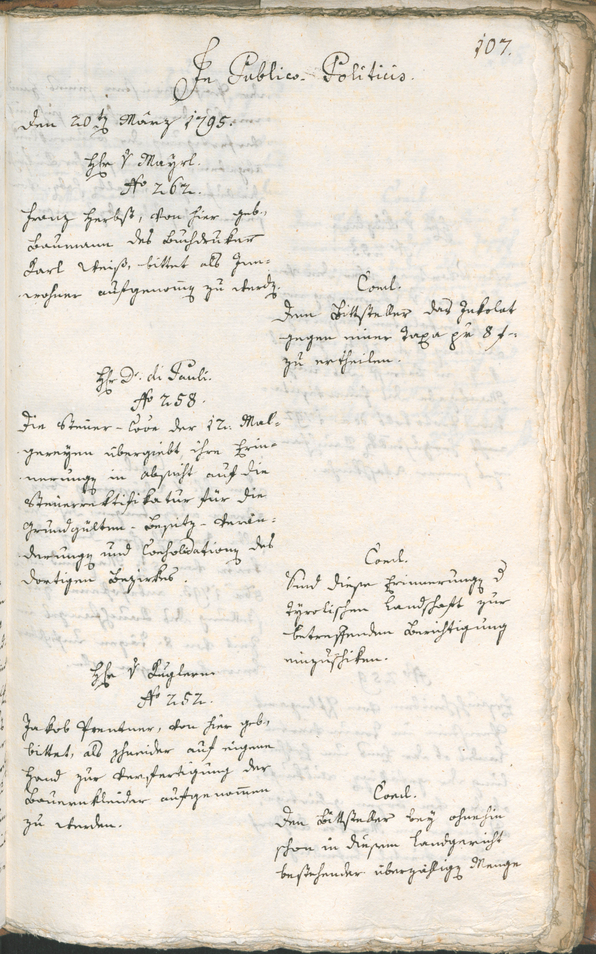 107.
In Publico-Politicis.
den 20t März 1795.
Hr v Mayrl.
No 262.
Franz Herbst, von hier geb:
Baumann des Buchdruker
Karl Weiß, bittet als Inn-
wohner aufgenomen zu werden.
Concl.
Dem Bittsteller das Inkolat
gegen einer Taxa pr 8 f:
zu ertheilen.
Hr Dr. di Pauli.
No 258.
Die Steuer-Coon der 12. Mal-
gereyen übergiebt ihre Erin-
nerungen in Absicht auf die
Steuerrektifikatur für die
Grundgülten-Besitz-Verän-
derungen und Consolidationen des
dortigen Bezirkes.
Concl.
Sind diese Erinnerungen d
Tyrolischen Landschaft zur
betreffenden Berichtigung
einzuschiken.
Hr v Kuglern
No 252.
Jakob Prentner, von hier geb:
bittet, als Schneider auf eigene
Hand zur Verfertigung der
Bauernkleider aufgenommen
zu werden.
Concl.
Den Bittsteller bey ohnehin
schon in diesem Landgericht
bestehender überzähligen Menge